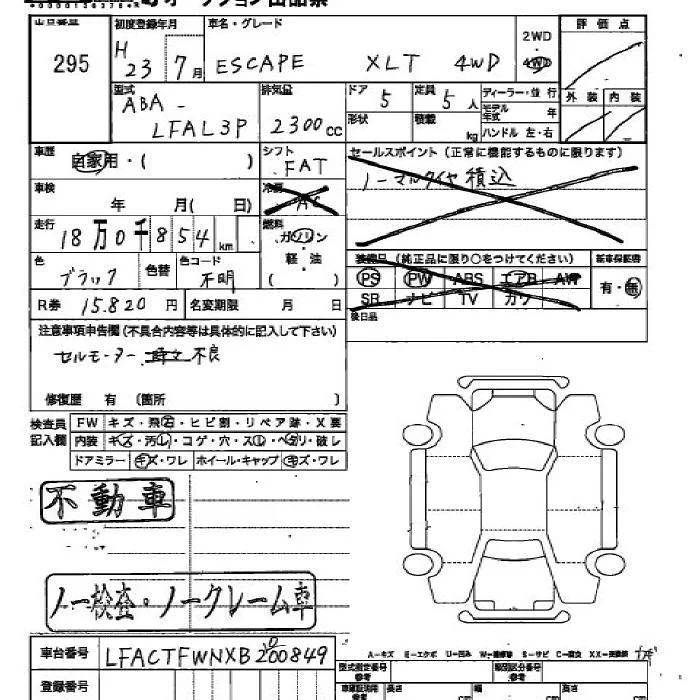 オークション出品票
295
初度登録年月
H 23 7月
車名・グレード
ESCAPE XLT 4WD
2WD
4WD
評価点
外装 内装
型式
ABA-
LFAL3P
排気量
2300cc
ドア 5
形状
定員 5人
積載 kg
ディーラー・並行
モデル年式 年
ハンドル 左・右
車歴
自家用・( )
シフト
FAT
冷房
AC
セールスポイント(正常に機能するものに限ります)
ノーマルタイヤ積込
車検
年 月( 日)
走行
18万0千854km
燃料
ガソリン
軽・油
( )
色
ブラック
色替
色コード
不明
装備品(純正品に限り○をつけてください)
PS PW ABS エアB AW
SR ナビ TV カワ
新車保証書
有・無
後日品
R券 15.820円
名変期限 月 日
注意事項申告欄(不具合内容等は具体的に記入して下さい)
セルモーター 不良
修復歴 有 〔箇所 〕
検査員
記入欄
FW キズ・飛石・ヒビ割・リペア跡・X要
内装 キズ・汚レ・コゲ・穴・スレ・ヘタリ・破レ
ドアミラー キズ・ワレ ホイール・キャップ キズ・ワレ
不動車
ノー検査・ノークレーム車
車台番号 LFACTFWNXB200849
登録番号
A-キズ E-エクボ U-凹み W-補修跡 S-サビ C-腐食 XX-交換済
型式指定番号
参考
類別区分番号
参考
長さ cm
幅 cm
高さ cm